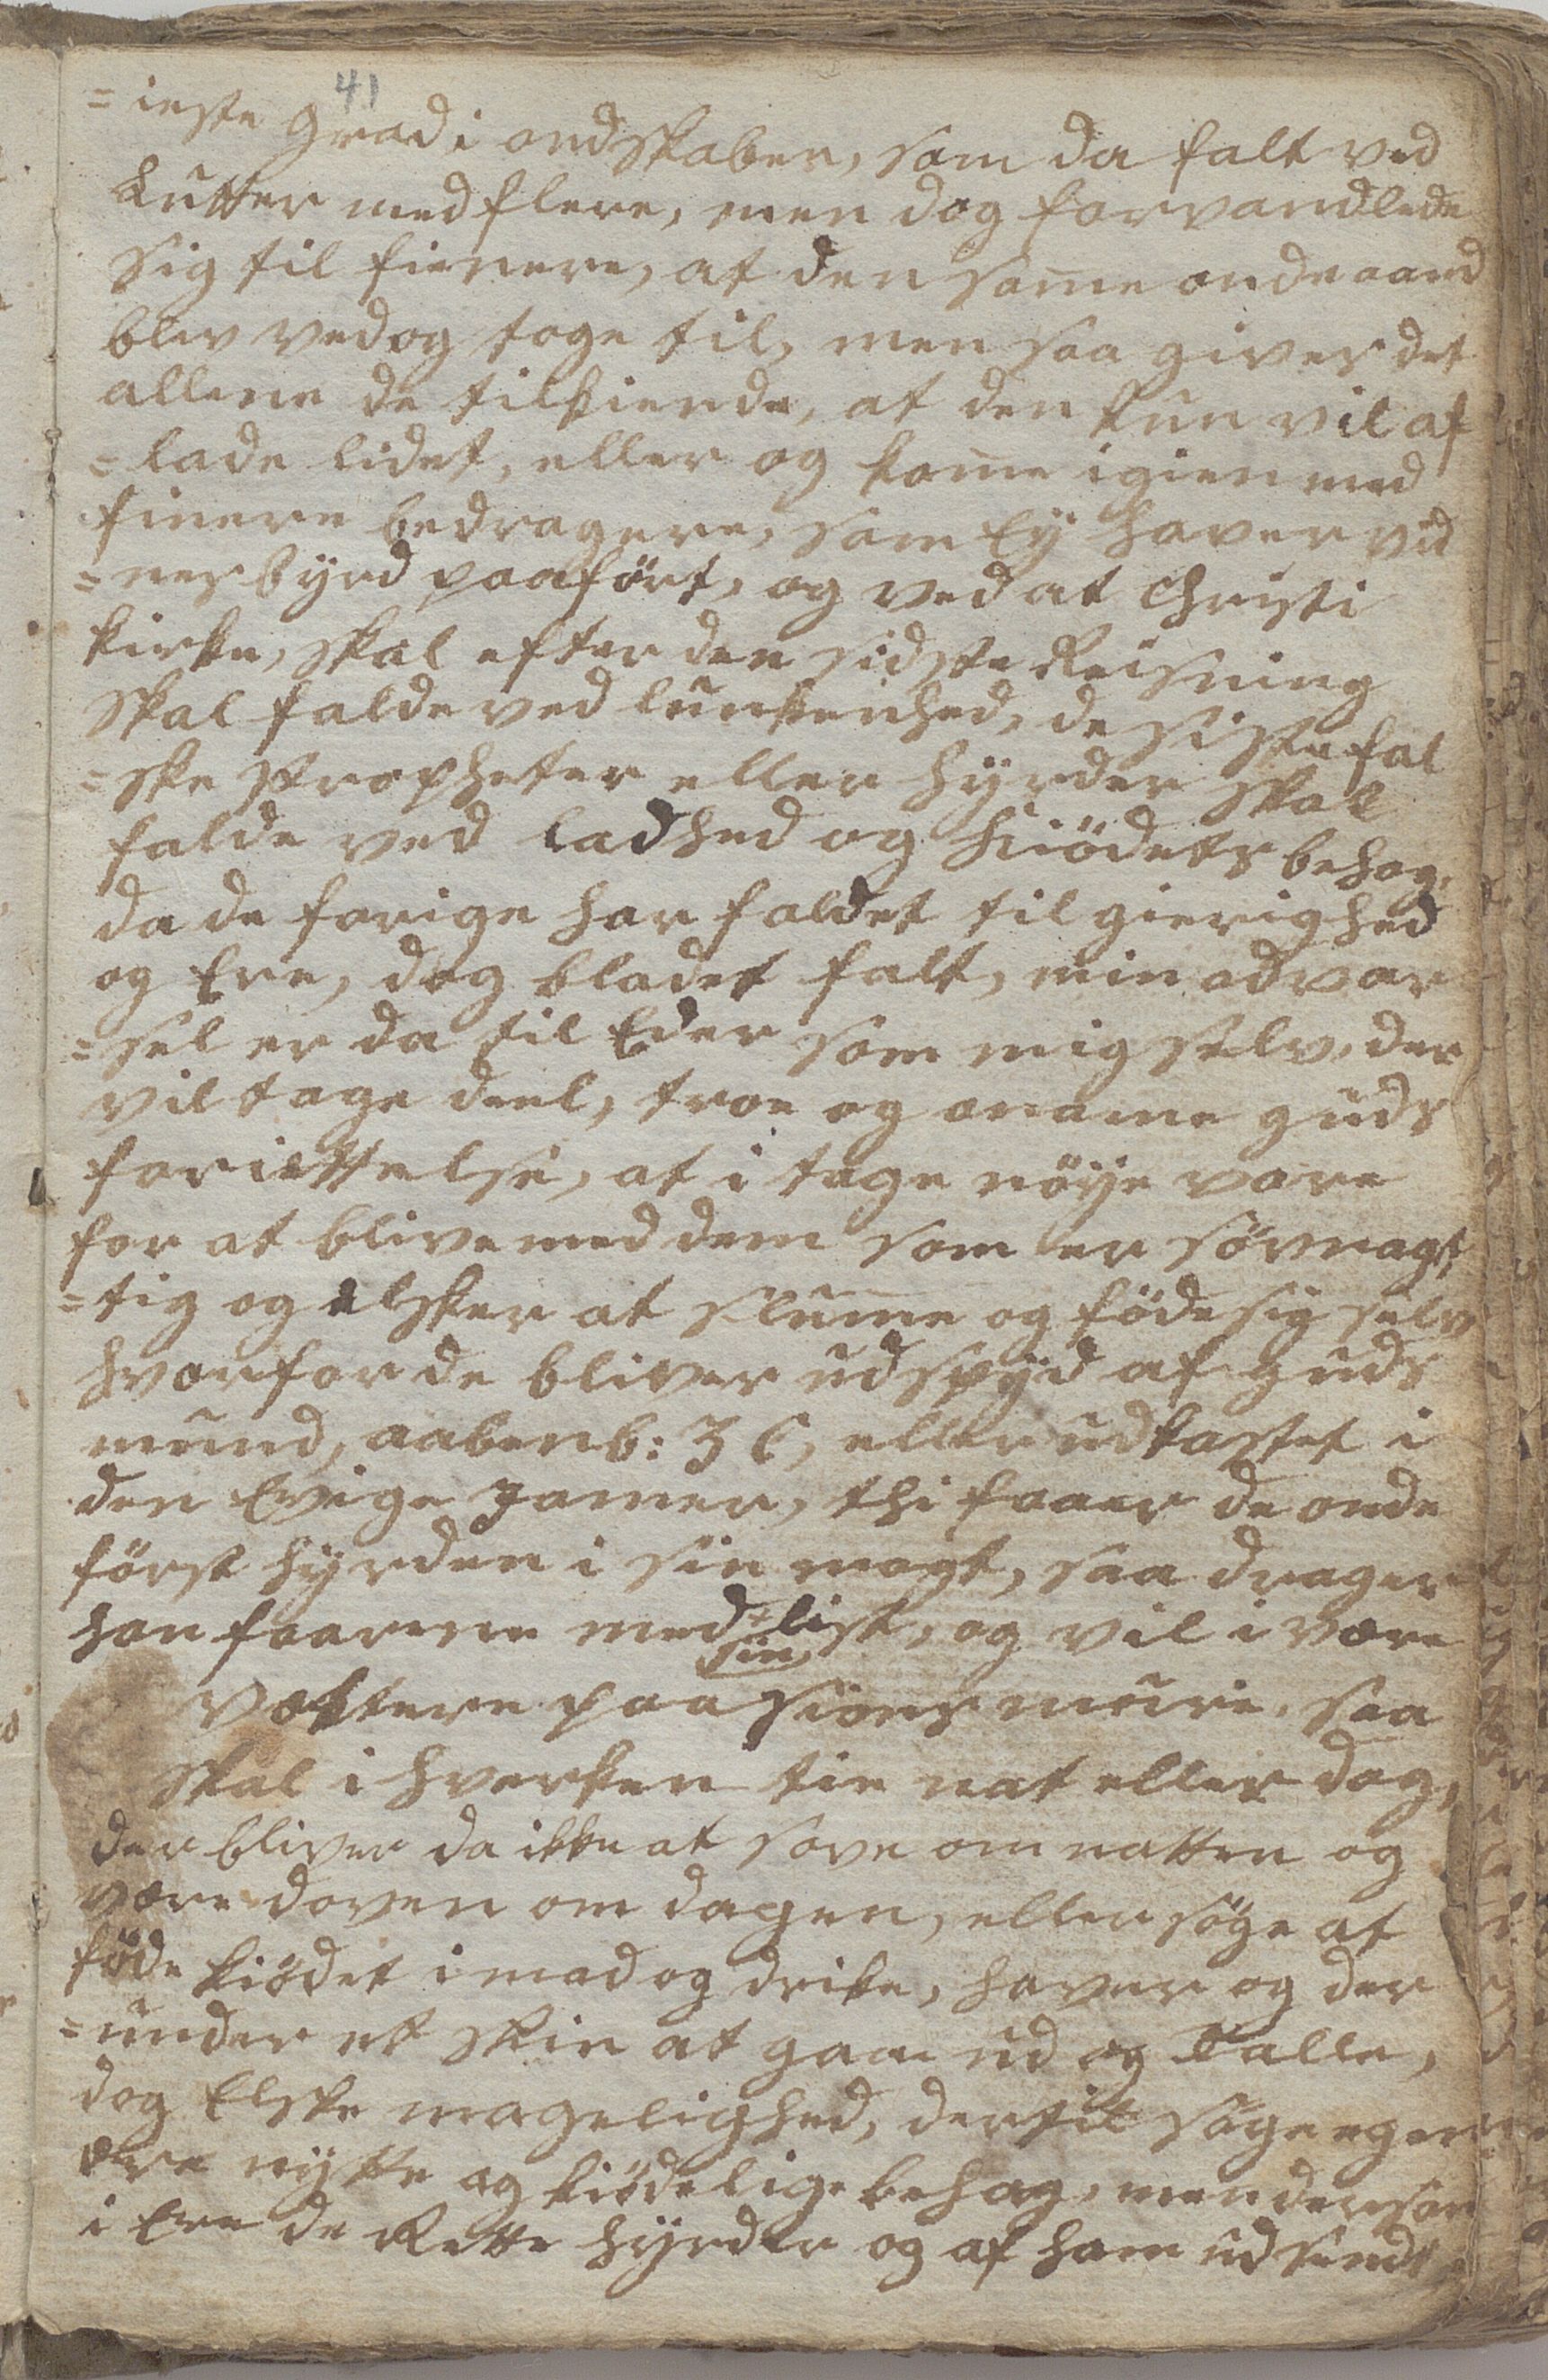 41
=ieste Grad i ondskaben, som da falt ved
Lutter med flere, men dog forvandlede
sig til finere, at den same onde aand
blev ved og toge til, men saa giver det
allene de tilkiende, at den kun vil af
=lade lidet, eller og kome igien med
finere bedragere, som Ey haver vid
=nesbyrd paaført, og ved at Christi
kirke, skal efter den sidste Reisning
skal falde ved lunkenhed, de siste fal
=ske Propheter eller hyrder skal
falde ved ladhed og kiödets behag,
da de forige har faldet til gierighed
og Ere, dog bladet falt, min advar
=sel er da til Eder som mig selv, der
vil tage deel, troe og aname guds
foriettelse, at i tage nöye vare
for at blive med dem som er sövnagt
=tig og elsker at slume og föde sig selv
hvorfor de bliver udspyd af guds
mund, aabenb: 3 C, eller udkastet i
den Evige Jamer, thi faaer de onde
först hyrden i sin magt, saa drager
han faarene med + list, og vil i være
sin
vektere paa sions mure, saa
skal i hverken tie nat eller dag,
der bliver da ikke at sove om natten og
være doven om dagen, eller söge at
föde kiödet i mad og drike, haver og der
=under et skin at gaae ud og talle,
dog Elske magelighed, dertil söge egen
ære nytte og kiödelige behag, men dersom
i Ere de Rette hyrder og af ham udsendt